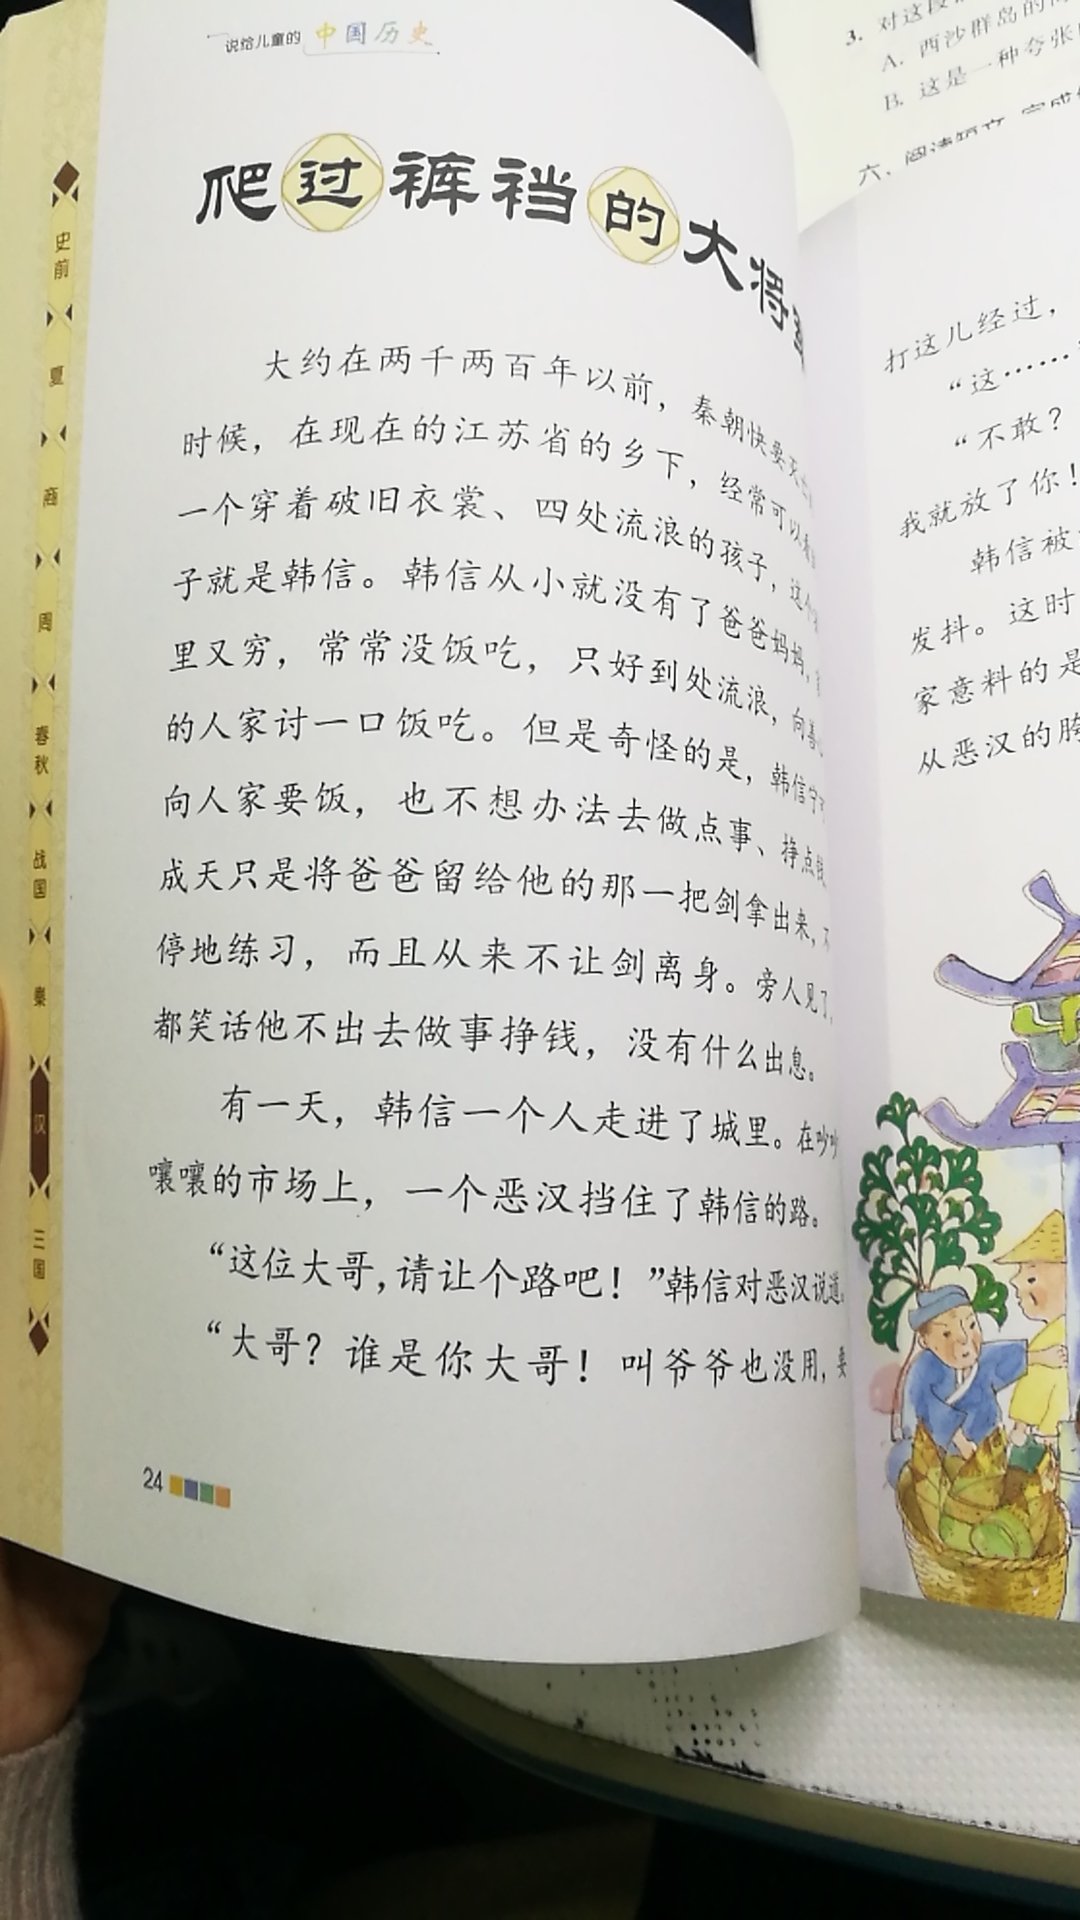 说给儿童的 中国历史
爬过裤裆的大将
大约在两千两百年以前，秦朝快要灭亡
时候，在现在的江苏省的乡下，经常可以看
一个穿着破旧衣裳、四处流浪的孩子，这个
子就是韩信。韩信从小就没有了爸爸妈妈，
里又穷，常常没饭吃，只好到处流浪，向善
的人家讨一口饭吃。但是奇怪的是，韩信宁
向人家要饭，也不想办法去做点事、挣点钱
成天只是将爸爸留给他的那一把剑拿出来，不
停地练习，而且从来不让剑离身。旁人见了，
都笑话他不出去做事挣钱，没有什么出息。
有一天，韩信一个人走进了城里。在吵吵
嚷嚷的市场上，一个恶汉挡住了韩信的路。
“这位大哥，请让个路吧！”韩信对恶汉说道。
“大哥？谁是你大哥！叫爷爷也没用，要
24
史前
夏
商
周
春秋
战国
秦
汉
三国
3. 对这段
A. 西沙群岛的
B. 这是一种夸张
六、阅读短文，完成
打这儿经过，
“这……
“不敢？
我就放了你！
韩信被
发抖。这时
家意料的是
从恶汉的胯